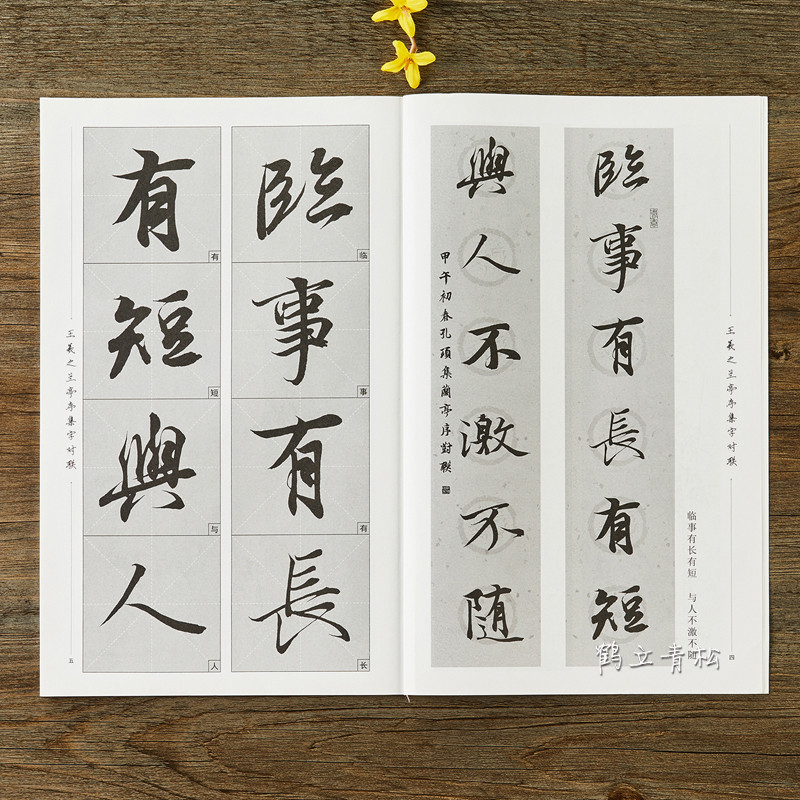 王羲之兰亭序集字对联
四
临事有长有短 与人不激不随
臨事有長有短
與人不激不随
甲午初春孔項集蘭亭序對聯
王羲之兰亭序集字对联
五
臨
临
事
事
有
有
長
长
有
有
短
短
與
与
人
人
鹤立青松